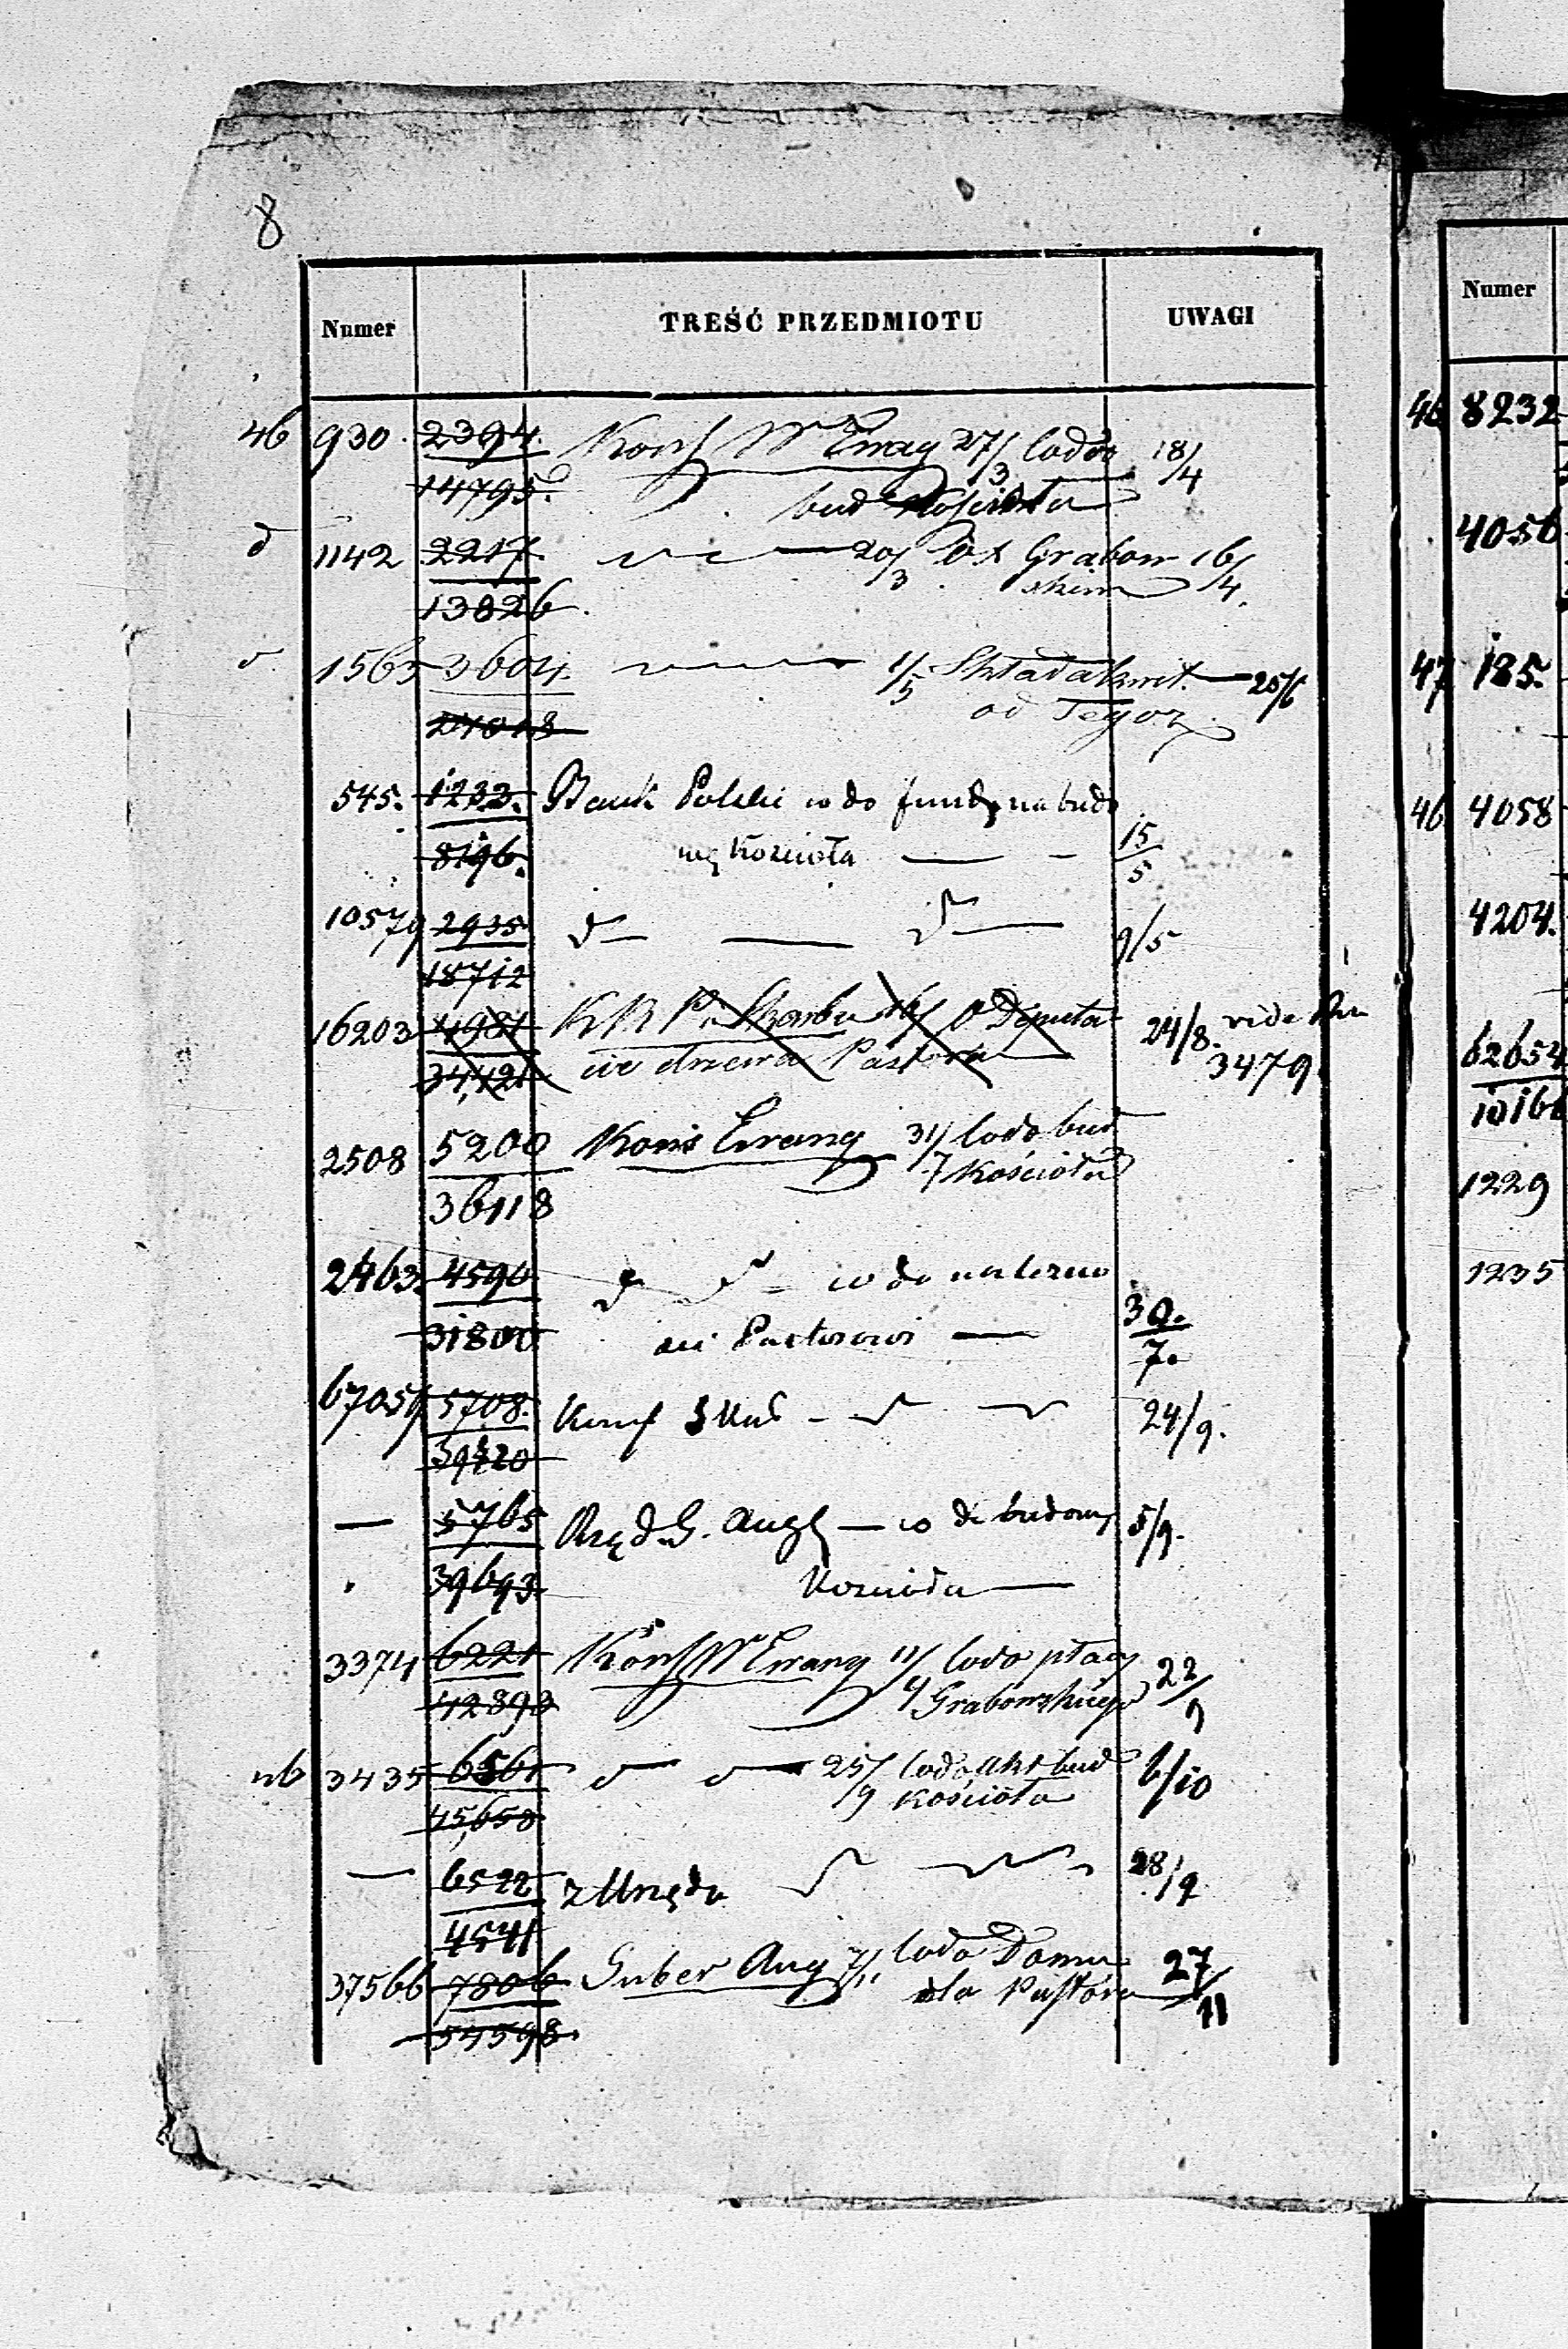 8
Numer TREŚĆ PRZEDMIOTU UWAGI
46 930. 2394. Kons W Ewang 27/3 co do 18/4
14795. bud Kościoła
d 1142 2217. 20/3 Grabow 16/4.
13826. skim
d 1565 3604. 1/5 Składa kwit. 25/6
24013 od Tegoż
545. 1233. Bank Polski co do fundy na budo
8196. wę Kościoła 15/5
10579 2935 d d 9/5
18712
16203 4981 K R P i Skarbu 16/ O Deputa 24/8. vide Nu
34,421 cie drzewa Pastora 3479
2508 5200 Kons Ewang 31/7 co do bud
36118 Kościoła
2463. 4590 d d co do należno
31800 sci Pastorowi 30./7.
67051 5708. 24/9.
39420
— 5765 Rząd G. Aug — co do budowy 5/9.
39693. Kościoła
3374 6221 Kons W Ewang 11/9 co do płacy 22/9
42893 Grabowskiego
3435 6561 d d 25/9 co do akt bud 6/10
45,658 Kościoła
— 6522 z Urzędu 28/9
4541
37566 7806 Guber Aug 7/11 co do Domu 27/11
54598. dla Pastora
Numer
46 8232
4056
47 185.
46 4058
4204.
62654
1229
1235